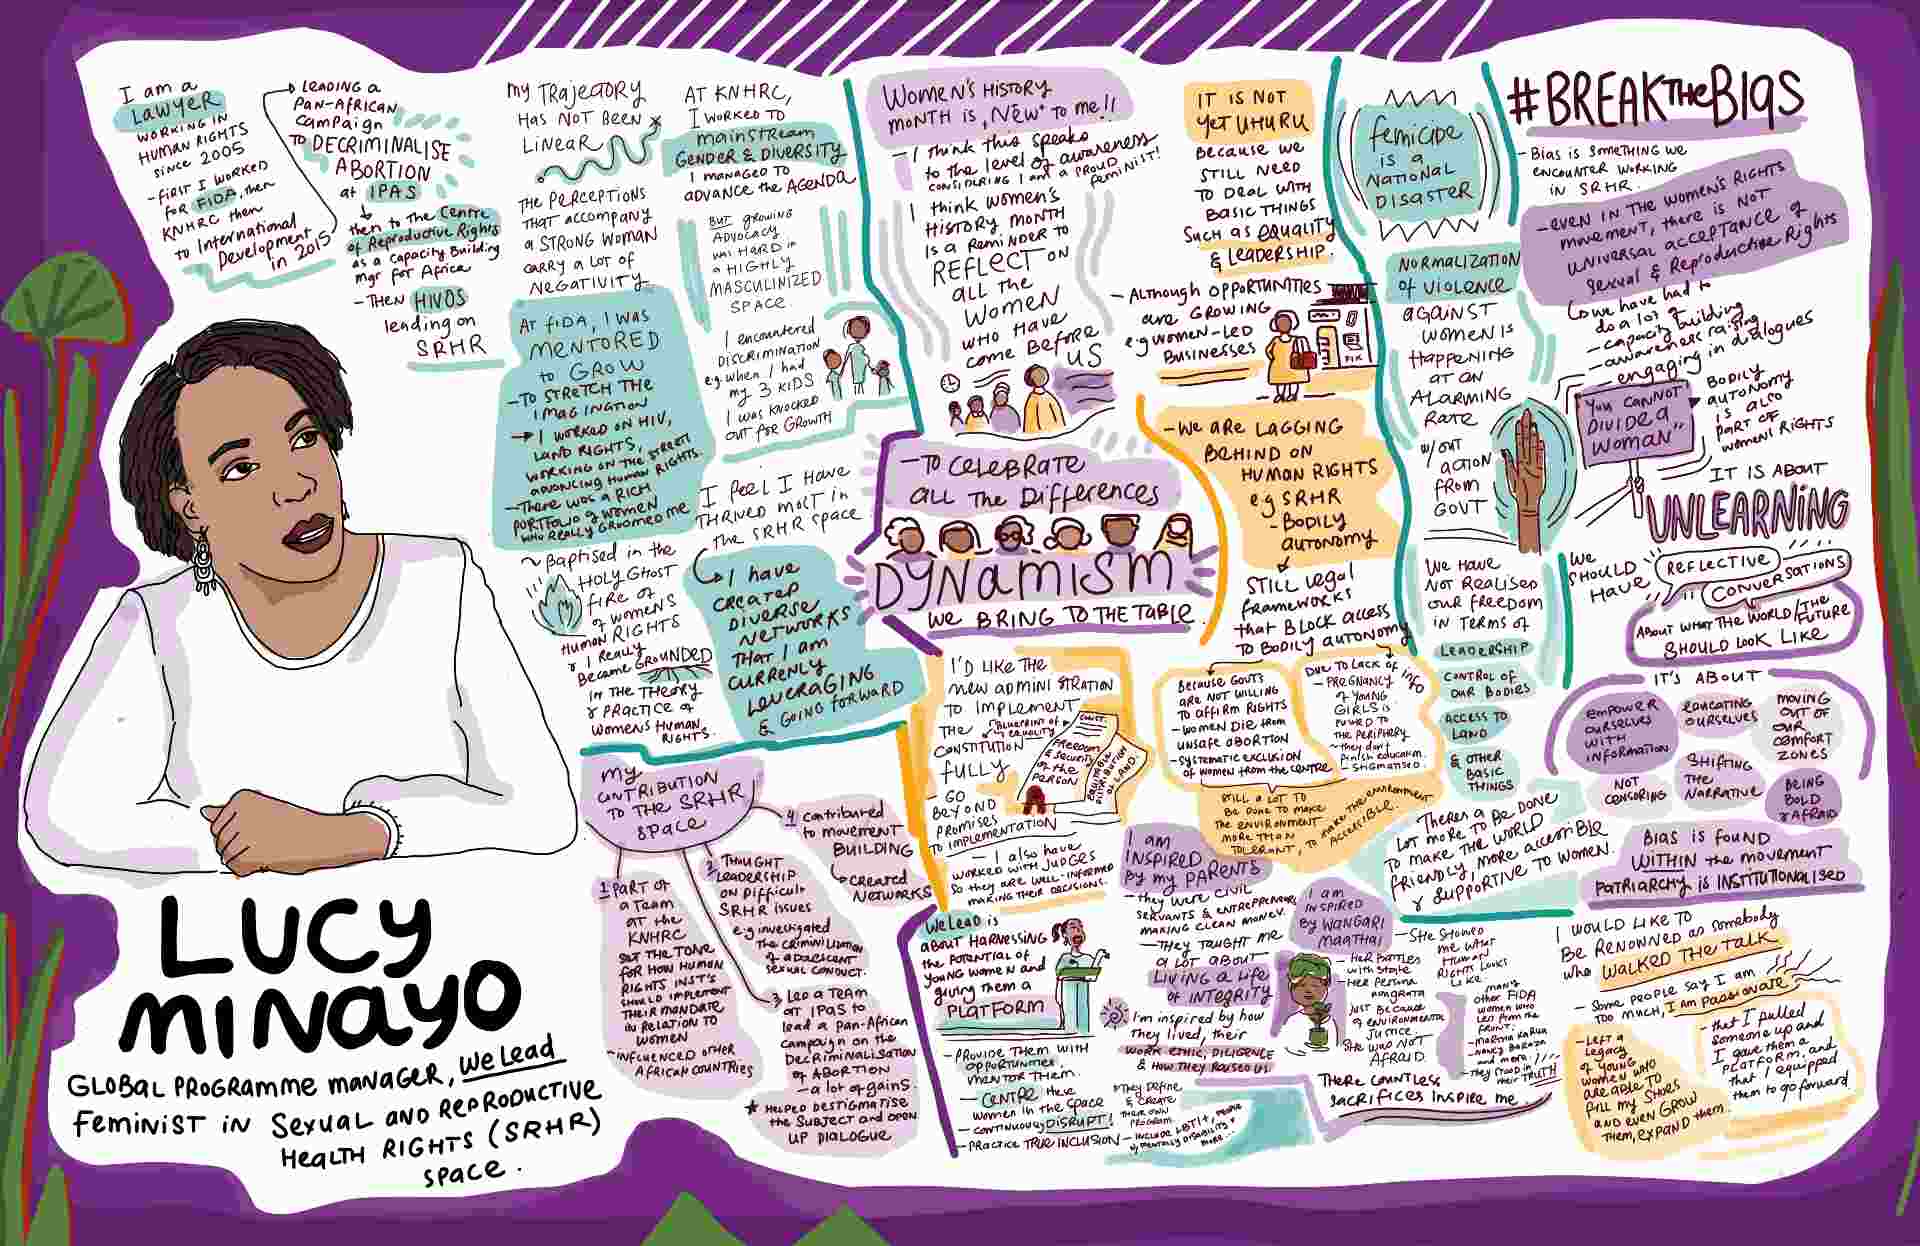 I am a
LAWYER
WORKING IN
HUMAN RIGHTS
SINCE 2005
- FIRST I WORKED
FOR FIDA, then
KNHRC then
to International
Development
in 2015
LEADING a
PAN-AFRICAN
campaign
TO DECRIMINALISE
ABORTION
at IPAS
then to the Centre
of Reproductive Rights
as a capacity Building
mgr for Africa
- THEN HIVOS
leading on
SRHR
LUCY
MINAYO
GLOBAL PROGRAMME MANAGER, We Lead
FEMINIST IN Sexual AND REPRODUCTIVE
HEALTH RIGHTS (SRHR)
SPACE.
my TRAJECTORY
HAS NOT BEEN
LINEAR
THE PERCEPTIONS
THAT accompany
a STRONG WOMAN
CARRY A LOT OF
NEGATIVITY
AT FIDA, I WAS
MENTORED
to GROW
- TO STRETCH THE
IMAGINATION
I WORKED ON HIV,
LAND RIGHTS,
WORKING ON THE STREET
ADVANCING HUMAN RIGHTS.
- THERE WAS A RICH
PORTFOLIO of WOMEN
WHO REALLY GROOMED me
~ BAPTISED in the
HOLY GHOST
FIRE OF
WOMEN'S
HUMAN RIGHTS
& I Really
Became GROUNDED
in THE THEORY
& PRACTICE of
WOMENS HUMAN
RIGHTS.
AT KNHRC,
I WORKED TO
mainstream
GENDER & DIVERSITY
I MANAGED TO
ADVANCE the AGENDA
BUT growing
ADVOCACY
was HARD in
a HIGHLY
MASCULINIZED
SPACE.
I encountered
DISCRIMINATION
eg. when I had
my 3 KIDS
I was KNOCKED
OUT FOR GROWTH
I FEEL I HAVE
THRIVED MOST in
the SRHR space
I have
CREATED
DIVERSE
NETWORKS
THAT I am
CURRENTLY
LEVERAGING
& GOING FORWARD
my
CONTRIBUTION
TO THE SRHR
SPACE
1 PART OF
a Team
AT the
KNHRC
SET THE TONE
FOR HOW HUMAN
RIGHTS INST'S
SHOULD IMPLEMENT
THEIR MANDATE
IN RELATION TO
WOMEN
- INFLUENCED OTHER
AFRICAN COUNTRIES
2 THOUGHT
LEADERSHIP
ON DIFFICULT
SRHR ISSUES
e.g investigated
THE CRIMINILIZATION
of ADOLESCENT
SEXUAL CONDUCT.
3 LED a TEAM
at IPAS to
lead a Pan-African
Campaign on the
DECRIMINALISATION
of ABORTION
- a lot of gains.
HELPED DESTIGMATISE
THE SUBJECT and OPEN
UP DIALOGUE
4 contributed
to MOVEMENT
BUILDING
CREATED
NETWORKS
WOMEN'S HISTORY
MONTH IS "NEW" TO me!!
- I think this speaks
to the level of awareness
CONSIDERING I am a PROUD
FEMINIST!
I think WOMEN'S
HISTORY MONTH
IS a REMINDER TO
REFLECT ON
all THE
WOMEN
WHO HAVE
COME BEFORE
US
- TO CELEBRATE
all THE DIFFERENCES
DYNAMISM
we BRING TO THE TABLE.
I'D LIKE THE
new ADMINISTRATION
TO IMPLEMENT
THE
CONSTITUTION
FULLY
BLUEPRINT of
EQUALITY
CONST.
FREEDOM
& SECURITY
OF THE
PERSON
EQUITABLE
DISTRIBUTION
OF LAND.
- GO
BEYOND
PROMISES
TO IMPLEMENTATION
- I also have
worked with JUDGES
SO they are well-informed
MAKING THEIR DECISIONS.
We LEAD is
about HARNESSING
the POTENTIAL of
YOUNG WOMEN and
giving THEM a
PLATFORM
- PROVIDE THEM WITH
OPPORTUNITIES
MENTOR THEM.
- CENTRE the
WOMEN in the SPACE
- CONTINUOUSLY DISRUPT!
- PRACTICE TRUE INCLUSION
- THEY DEFINE
& CREATE
THEIR OWN
PROGRAM.
- INCLUDE LBTI+, PEOPLE
w/ MENTALLY DISABILITY &
MORE...
I am
INSPIRED
by my PARENTS
- they were CIVIL
SERVANTS & ENTREPRENEURS
MAKING CLEAN MONEY.
- THEY TAUGHT ME
A LOT ABOUT
LIVING A LIFE
of INTEGRITY
I'm inspired by how
They lived, their
WORK ETHIC, DILIGENCE
& HOW THEY RAISED US.
IT IS NOT
YET UHURU
BECAUSE we
STILL NEED
TO DEAL WITH
BASIC THINGS
SUCH as EQUALITY
& LEADERSHIP.
- Although OPPORTUNITIES
are GROWING
e.g WOMEN-LED
BUSINESSES
- We are LAGGING
BEHIND ON
HUMAN RIGHTS
e.g SRHR
- BODILY
AUTONOMY
STILL legal
FRAMEWORKS
that BLOCK ACCESS
TO BODILY AUTONOMY
Because GOVTS
are NOT WILLING
TO AFFIRM RIGHTS
- WOMEN DIE from
UNSAFE ABORTION
- SYSTEMATIC EXCLUSION
OF WOMEN FROM the CENTRE
DUE TO LACK of INFO
- PREGNANCY
of YOUNG
GIRLS IS
PUSHED TO
THE PERIPHERY
- they don't
finish education.
- STIGMATISED.
STILL A LOT TO
BE DONE TO MAKE
THE ENVIRONMENT
MORE THAN
TOLERANT, TO MAKE THE ENVIRONMENT
ACCESSIBLE.
I am
INSPIRED
by WANGARI
MAATHAI
- HER BATTLES
with State
- HER PERSONA
NON GRATA
JUST BECAUSE
of ENVIRONMENTAL
JUSTICE.
SHE WAS NOT
AFRAID.
- SHE SHOWED
ME WHAT
HUMAN
RIGHTS LOOKS
LIKE
MANY
OTHER FIDA
WOMEN WHO
LED FROM THE
FRONT:
- MARTHA KARUA
- NANCY BARAZA
and more.
- THEY STOOD IN
THEIR TRUTH
THERE COUNTLESS
SACRIFICES INSPIRE me.
Femicide
is a
NATIONAL
DISASTER
NORMALIZATION
of VIOLENCE
against
WOMEN IS
HAPPENING
AT AN
ALARMING
RATE
w/OUT
ACTION
FROM
GOVT
WE HAVE
NOT REALISED
OUR FREEDOM
IN TERMS OF
LEADERSHIP
CONTROL OF
OUR BODIES
ACCESS TO
LAND
& OTHER
BASIC
THINGS
THERE'S A
LOT MORE TO BE DONE
TO MAKE THE WORLD
FRIENDLY, MORE ACCESSIBLE
& SUPPORTIVE TO WOMEN.
#BREAKTHEBIAS
- Bias IS something we
encounter WORKING
IN SRHR.
- even IN THE WOMEN'S RIGHTS
movement, there is NOT
UNIVERSAL acceptance of
Sexual & Reproductive Rights
we have had to
do a lot of
- capacity building
- awareness raising
- engaging in dialogues
"YOU CANNOT
DIVIDE A
WOMAN"
BODILY
AUTONOMY
IS ALSO
PART OF
WOMENS RIGHTS
IT IS ABOUT
UNLEARNING
We
SHOULD
HAVE
REFLECTIVE
CONVERSATIONS
ABOUT WHAT THE WORLD/THE
FUTURE
SHOULD LOOK LIKE
IT'S ABOUT
EMPOWER
OURSELVES
WITH
INFORMATION
EDUCATING
OURSELVES
MOVING
OUT OF
OUR
COMFORT
ZONES
NOT
CENSORING
SHIFTING
THE
NARRATIVE
BEING
BOLD
& AFRAID
BIAS IS FOUND
WITHIN the movement
PATRIARCHY is INSTITUTIONALISED
I WOULD LIKE TO
BE RENOWNED as somebody
who WALKED THE TALK
- Some PEOPLE SAY I AM
TOO MUCH, I AM PASSIONATE
- LEFT a
LEGACY
of YOUNG
WOMEN WHO
are able to
FILL my SHOES
AND even GROW
THEM, EXPAND them.
- that I pulled
someone up and
I gave them a
PLATFORM, and
that I equipped
them to go forward